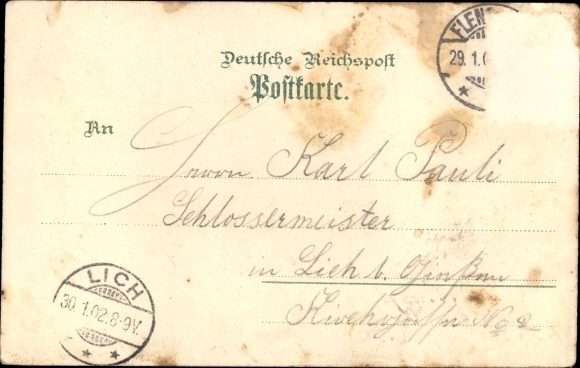 Deutsche Reichspost
Postkarte.
FLEN
29. 1.
An
Herrn Karl Pauli
Schlossermeister
in Lich b. Gießen
LICH
30. 1. 02. 8-9V.
No 2